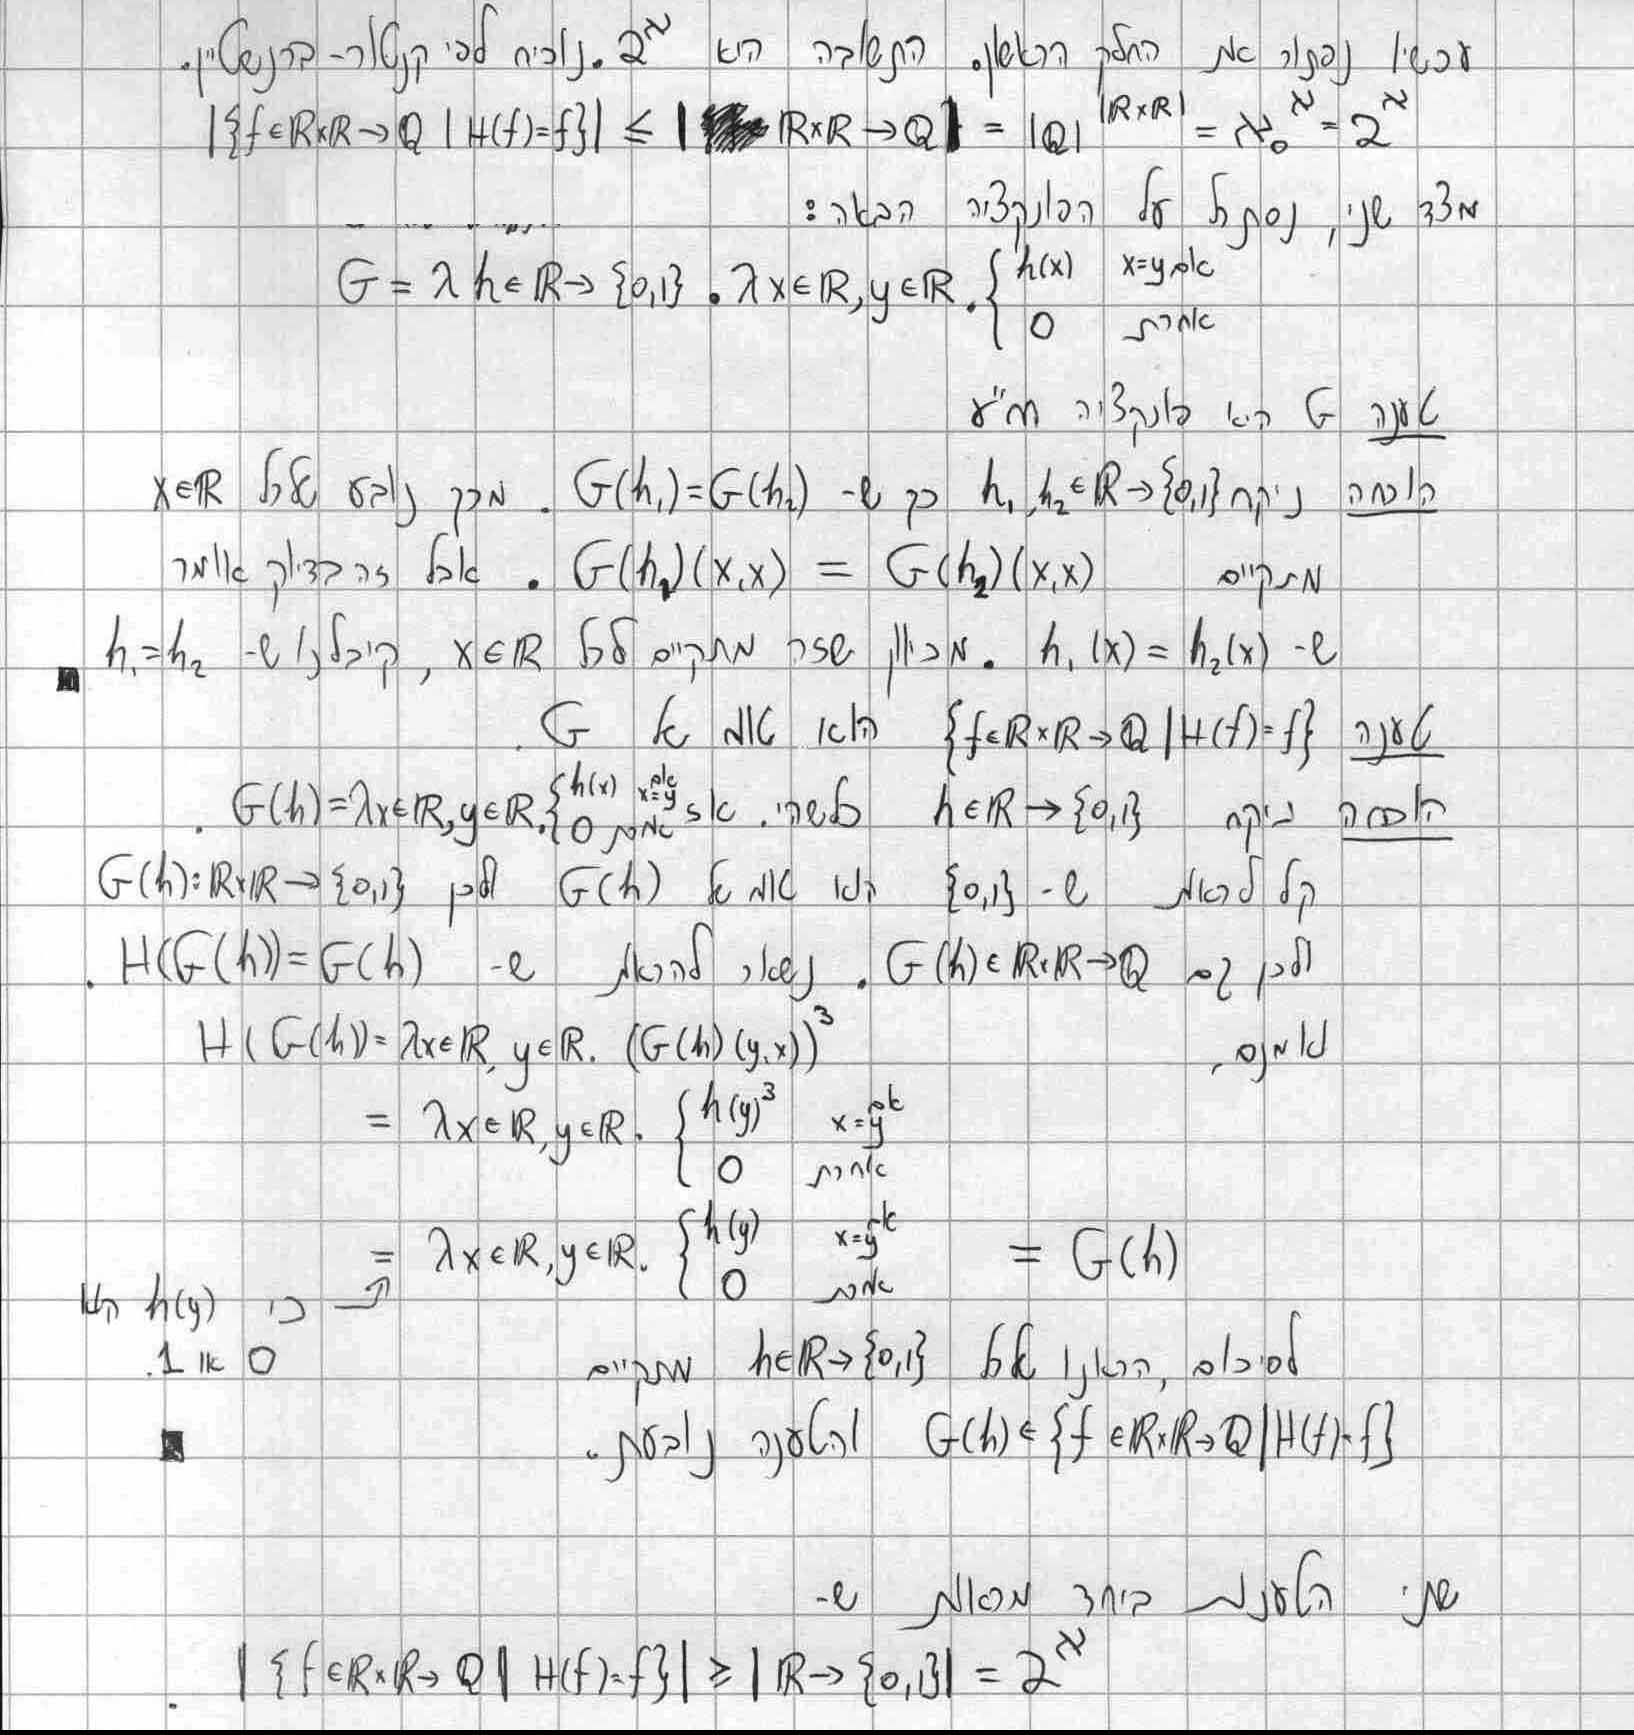 עכשיו נפתור את החלק הראשון. התשובה היא 2^א. נוכיח לפי קנטור-ברנשטיין.
|{f∈ℝ×ℝ→ℚ | H(f)=f}| ≤ |ℝ×ℝ→ℚ| = |ℚ|^|ℝ×ℝ| = א₀^א = 2^א
מצד שני, נסתכל על הפונקציה הבאה:
G = λh∈ℝ→{0,1}. λx∈ℝ,y∈ℝ. { h(x) אם x=y
0 אחרת
טענה G היא פונקציה חח"ע
הוכחה ניקח h₁,h₂∈ℝ→{0,1} כך ש- G(h₁)=G(h₂). מכך נובע שלכל x∈ℝ
מתקיים G(h₁)(x,x) = G(h₂)(x,x). אבל זה בדיוק אומר
ש- h₁(x)=h₂(x). מכיוון שזה מתקיים לכל x∈ℝ, קיבלנו ש- h₁=h₂ ■
טענה {f∈ℝ×ℝ→ℚ | H(f)=f} הוא טווח של G.
הוכחה ניקח h∈ℝ→{0,1} כלשהי. אז G(h)=λx∈ℝ,y∈ℝ.{ h(x) אם x=y
0 אחרת .
קל לראות ש- {0,1} הוא טווח של G(h) ולכן G(h):ℝ×ℝ→{0,1}
ולכן גם G(h)∈ℝ×ℝ→ℚ. נשאר להראות ש- H(G(h))=G(h).
ואמנם, H(G(h))=λx∈ℝ,y∈ℝ. (G(h)(y,x))³
= λx∈ℝ,y∈ℝ. { h(y)³ אם x=y
0 אחרת
= λx∈ℝ,y∈ℝ. { h(y) אם x=y
0 אחרת = G(h)
כי h(y) הוא
0 או 1.
לסיכום, הראנו שלכל h∈ℝ→{0,1} מתקיים
G(h)∈{f∈ℝ×ℝ→ℚ | H(f)=f} והטענה נובעת. ■
שתי הטענות ביחד מראות ש-
|{f∈ℝ×ℝ→ℚ | H(f)=f}| ≥ |ℝ→{0,1}| = 2^א .